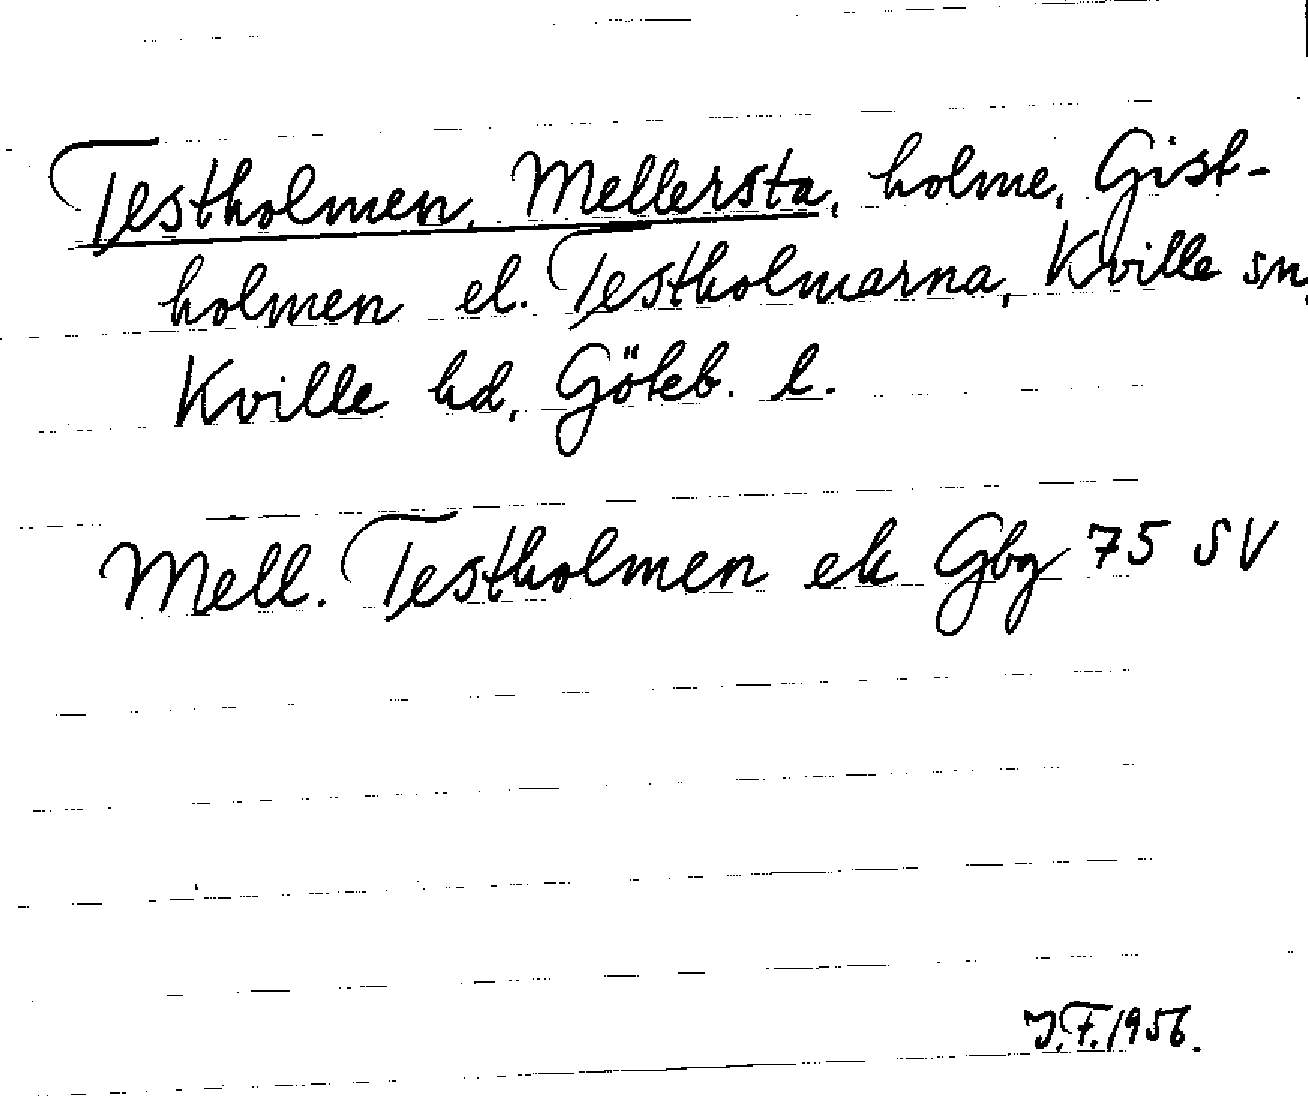 Testholmen, Mellersta, holme, Gist-
holmen el. Testholmarna, Kville sn,
Kville hd, Göteb. l.
Mell. Testholmen ek Gbg 75 SV
J.F. 1956.